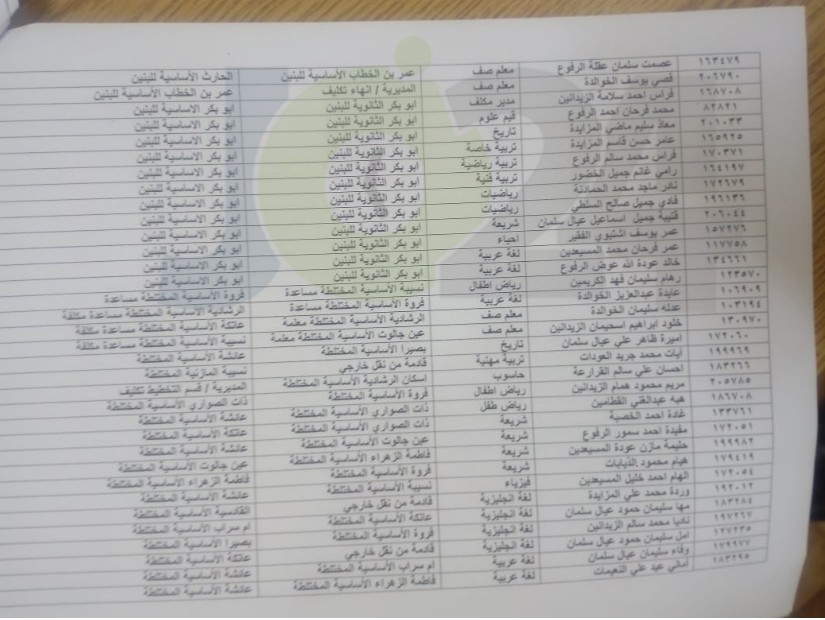 ١٦٣٤٧٩ عصمت سلمان عقلة الرفوع معلم صف عمر بن الخطاب الأساسية للبنين الحارث الأساسية للبنين
٢٠٦٧٩٠ قصي يوسف الخوالدة معلم صف المديرية / انهاء تكليف عمر بن الخطاب الأساسية للبنين
١٦٨٧٠٨ فراس احمد سلامة الزيدانين مدير مكلف ابو بكر الثانوية للبنين ابو بكر الاساسية للبنين
٨٢٨٢١ محمد فرحان احمد الرفوع قيم علوم ابو بكر الثانوية للبنين ابو بكر الاساسية للبنين
٢٠١٠٣٣ معاذ سليم ماضي المزايدة تاريخ ابو بكر الثانوية للبنين ابو بكر الاساسية للبنين
١٦٥٩٢٥ عامر حسن قاسم المزايدة تربية خاصة ابو بكر الثانوية للبنين ابو بكر الاساسية للبنين
١٧٠٣٧١ فراس محمد سالم الرفوع تربية رياضية ابو بكر الثانوية للبنين ابو بكر الاساسية للبنين
١٦٤١٩٧ رامي غانم جميل الخضور تربية فنية ابو بكر الثانوية للبنين ابو بكر الاساسية للبنين
١٧٢٦٧٩ نادر ماجد محمد الحمادنة رياضيات ابو بكر الثانوية للبنين ابو بكر الاساسية للبنين
١٩٦١٣٦ فادي جميل صالح السلطي رياضيات ابو بكر الثانوية للبنين ابو بكر الاساسية للبنين
٢٠٦٠٤٤ قتيبة جميل اسماعيل عيال سلمان شريعة ابو بكر الثانوية للبنين ابو بكر الاساسية للبنين
١٥٧٢٧٦ عمر يوسف اشتيوي الفقير احياء ابو بكر الثانوية للبنين ابو بكر الاساسية للبنين
١١٧٧٥٨ عمر فرحان محمد المسيعدين لغة عربية ابو بكر الثانوية للبنين ابو بكر الاساسية للبنين
١٣٤٦٦١ خالد عودة الله عوض الرفوع لغة عربية ابو بكر الثانوية للبنين ابو بكر الاساسية للبنين
١٢٣٥٧٠ رهام سليمان فهد الكريمين رياض اطفال نسيبة الأساسية المختلطة مساعدة فروة الأساسية المختلطة مساعدة
١٠٦٩٠٩ عايدة عبدالعزيز الخوالدة لغة عربية فروة الأساسية المختلطة مساعدة الرشادية الأساسية المختلطة مساعدة مكلفة
١٠٣١٩٤ عدله سليمان الخوالدة معلم صف الرشادية الأساسية المختلطة معلمة عاتكة الأساسية المختلطة مساعدة مكلفة
١٣٠٩٧٠ خلود ابراهيم اسحيمان الزيدانين معلم صف عين جالوت الأساسية المختلطة معلمة نسيبة الأساسية المختلطة مساعدة مكلفة
١٧٢٠٦٠ اميرة ظاهر علي عيال سلمان تاريخ بصيرا الأساسية المختلطة عائشة الأساسية المختلطة
١٩٩٩٦٩ آيات محمد جريد العودات تربية مهنية قادمة من نقل خارجي نسيبة المازنية المختلطة
١٨٣٢٦٦ احسان علي سالم القرارعة حاسوب اسكان الرشادية الأساسية المختلطة المديرية / قسم التخطيط تكليف
٢٠٥٧٨٥ مريم محمود همام الزيدانين رياض اطفال فروة الأساسية المختلطة ذات الصواري الأساسية المختلطة
١٨٦٧٠٨ هبه عبدالغني القطامين رياض طفل ذات الصواري الأساسية المختلطة عائشة الأساسية المختلطة
١٣٣٧٦١ غادة احمد الخصبة شريعة ذات الصواري الأساسية المختلطة عاتكة الأساسية المختلطة
١٧٢٠٥١ مفيدة احمد سمور الرفوع شريعة عين جالوت الأساسية المختلطة عائشة الأساسية المختلطة
١٩٩٩٨٢ حليمة مازن عودة المسيعدين شريعة فاطمة الزهراء الأساسية المختلطة عين جالوت الأساسية المختلطة
١٧٩٤١٩ هيام محمود الذيابات شريعة فروة الأساسية المختلطة فاطمة الزهراء الأساسية المختلطة
١٧٢٠٥٤ الهام احمد خليل المسيعدين فيزياء نسيبة الأساسية المختلطة عائشة الأساسية المختلطة
١٩٢٠١٢ وردة محمد علي المزايدة لغة انجليزية قادمة من نقل خارجي القادسية الأساسية المختلطة
١٨٣٢٨٤ مها سليمان حمود عيال سلمان لغة انجليزية عاتكة الأساسية المختلطة ام سراب الأساسية المختلطة
١٩٧٢٦٧ ناديا محمد سالم الزيدانين لغة انجليزية فروة الأساسية المختلطة بصيرا الأساسية المختلطة
١٢٧٢٣٥ امل سليمان حمود عيال سلمان لغة انجليزية قادمة من نقل خارجي عاتكة الأساسية المختلطة
١٧٩٩٧٧ وفاء سليمان عيال سلمان لغة عربية ام سراب الأساسية المختلطة عائشة الأساسية المختلطة
١٨٣٢٩٥ أماني عبد علي النعيمات لغة عربية فاطمة الزهراء الأساسية المختلطة عائشة الأساسية المختلطة